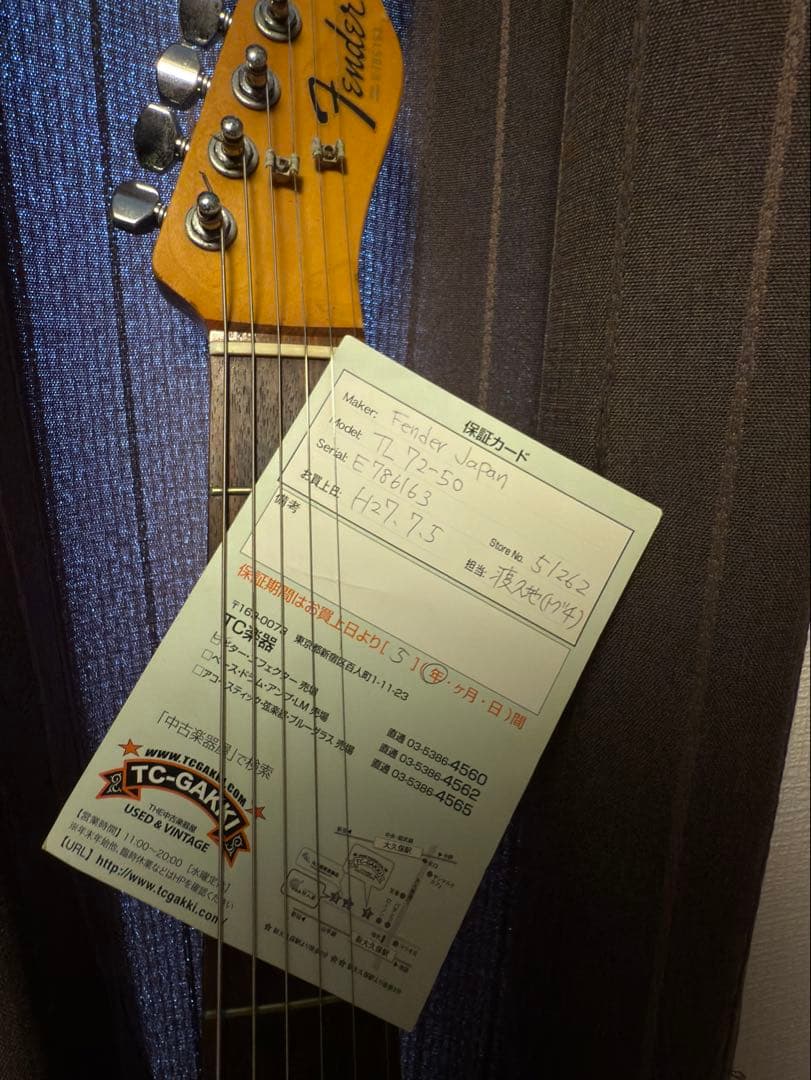 Fender
保証カード
Maker: Fender Japan
Model: TL 72-50
Serial: E786163
お買上日: H27.7.5
Store No. 51262
備考
担当:
保証期間はお買上日より[ 5 ](年・ヶ月・日)間
〒169-0073 東京都新宿区百人町1-11-23
TC楽器
ギター・エフェクター 売場 直通 03-5386-4560
□ベース・ドラム・アンプ・LM 売場 直通 03-5386-4562
□アコースティック・弦楽器・ブルーグラス 売場 直通 03-5386-4565
「中古楽器屋」で検索
WWW.TCGAKKI.COM
TC-GAKKI
THE中古楽器屋
USED & VINTAGE
【営業時間】11:00~20:00 [水曜定休]
※年末年始他、臨時休業などはHPを確認ください
【URL】http://www.tcgakki.com/
大久保駅
新大久保駅